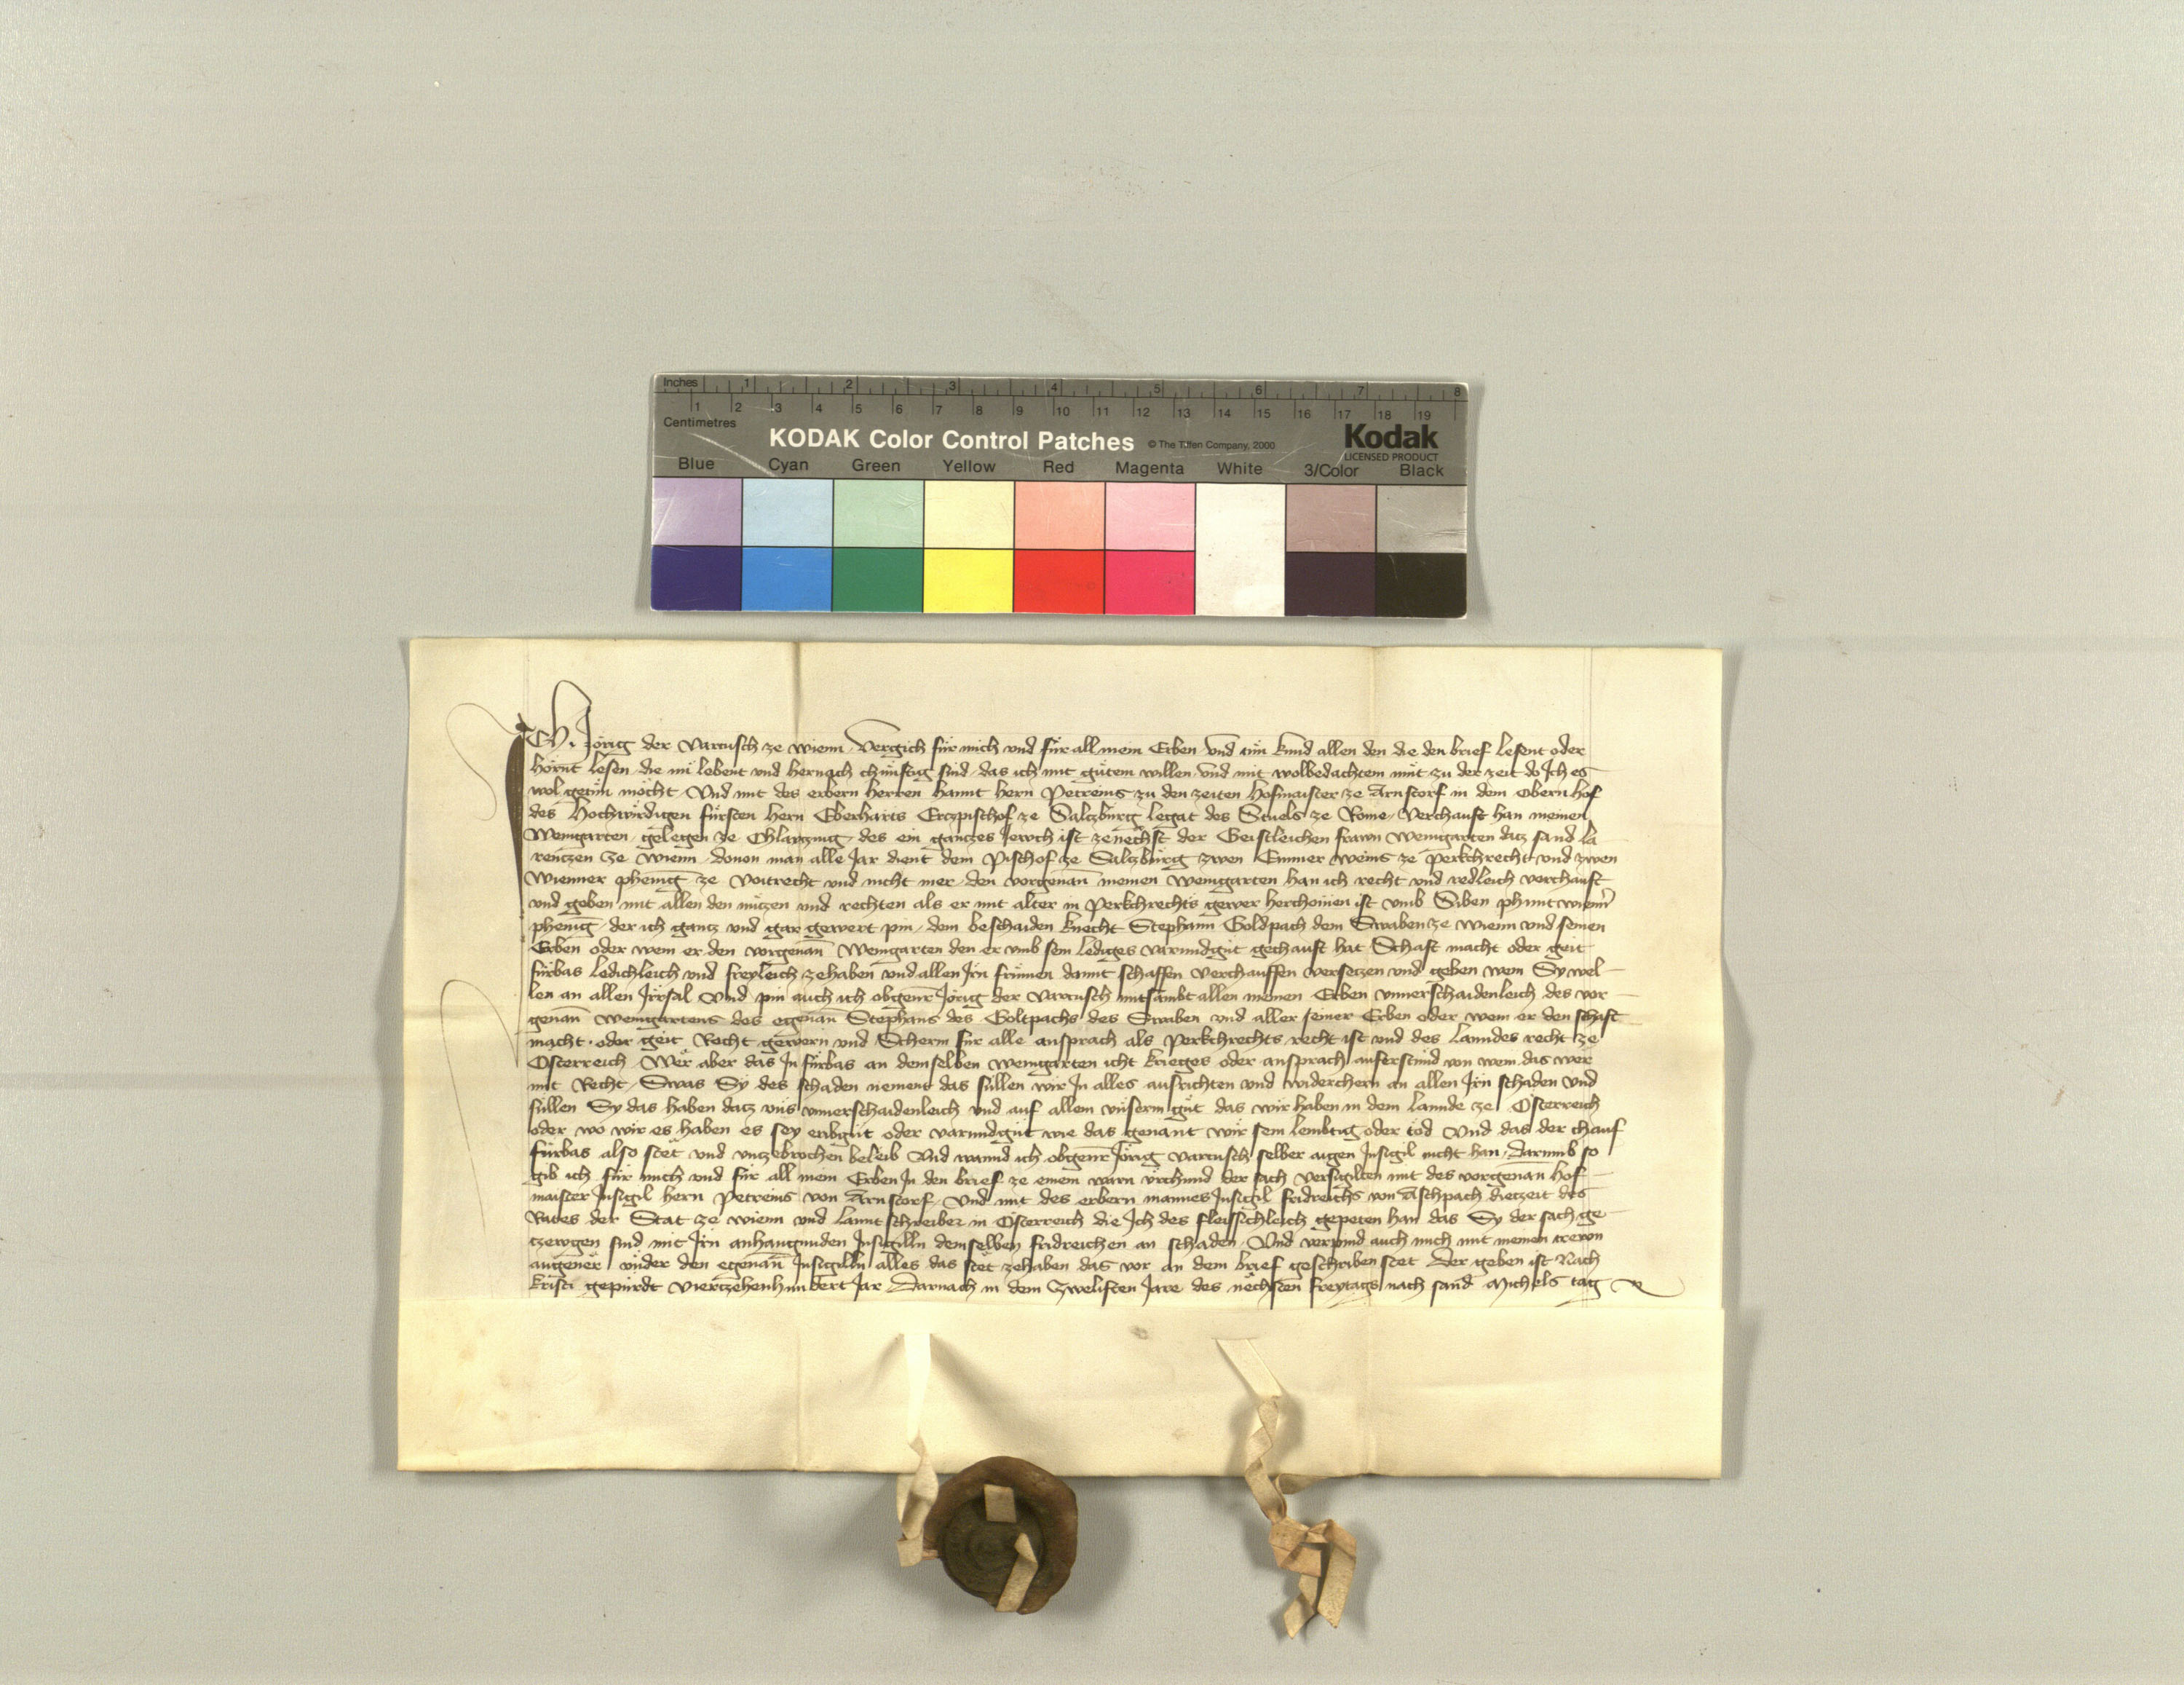 Inches 1 2 3 4 5 6 7 8
Centimetres 1 2 3 4 5 6 7 8 9 10 11 12 13 14 15 16 17 18 19
KODAK Color Control Patches © The Tiffen Company, 2000 Kodak
LICENSED PRODUCT
Blue Cyan Green Yellow Red Magenta White 3/Color Black
ICH Jörig der Vartusch ze wienn Vergich für mich vnd für all mein Erben vnd tün kund allen den die den brief lesent oder
hörnt lesen die nü lebent vnd hernach chünftig sind das ich mit gütem willen vnd mit wolbedachtem müt zu der zeit do Ich es
wol getün möcht Vnd mit des erbern herren hannt hern Petreins zu den zeiten Hofmaister ze Arnstorf in dem obern hof
des Hochwirdigen fürsten hern Eberharts Erczpischof ze Salczburg legat des Stuels ze Rome Verchauft han meinen
Weingarten gelegen ze des ein ganczes Jewch ist ze nechst der Geistleichen frawn weingarten datz sand la
renczen ze wienn douon man alle Jar dient dem Pischof ze Salczburg zwen Emmer weins ze perkchrecht vnd zwen
wienner phenig ze voitrecht vnd nicht mer den vorgenan meinen weingarten han ich recht vnd redleich verchauft
vnd geben mit allen den nützen vnd rechten als er mit alter in Perkchrechts gewer herchomen ist vmb Siben phunt wienner
phenig der ich gancz vnd gar gewert pin dem beschaiden knecht Stephann Goldpach dem Swaben ze wienn vnd seinen
Erben oder wem er den vorgenan Weingarten den er vmb sein lediges varundgüt gechauft hat Schaft macht oder geit
fürbas ledichleich vnd freyleich ze haben vnd allen Irn frümen damit schaffen verchauffen verseczen vnd geben wem Sy wel
len an allen Irrsal Vnd pin auch ich obgenr Jörig der Vartusch mitsambt allen meinen Erben vnuerschaidenleich des vor
genan weingartens des egenan Stephans des Goltpachs des Swaben vnd aller seiner Erben oder wem er den schaft
macht oder geit Recht gewern vnd Scherm für alle ansprach als Perkchrechts recht ist vnd des Lanndes recht ze
Österreich Wer aber das In fürbas an demselben weingarten icht krieges oder ansprach auferstünd von wem das wer
mit Recht Swas Sy des schaden nement das süllen wir In alles ausrichten vnd widerchern an allen Irn schaden Vnd
süllen Sy das haben datz vns vnuerschaidenleich vnd auf allem vnserm güt das wir haben in dem Lannde ze Österreich
oder wo wir es haben es sey eribgüt oder varundgüt wie das genant wir sein lembtig oder tod Vnd das der chauf
fürbas also stet vnd vnczebrochen beleib Vnd wannd ich obgenr Jörig vartusch selber aigen Insigil nicht han Darumb so
gib ich für mich vnd für all mein Erben In den brief ze einem warn vrchund der sach versigilten mit des vorgenan hof
maister Insigil hern Petreins von Arnstorf Vnd mit des erbern mannes Insigil fridreichs von Aschpach dieczeit des
Rates der Stat ze wienn vnd lannt schreiber in Österreich die Ich des fleissichleich gepeten han das Sy der sach ge
czewgen sind mit Irn anhangunden Insigilln demselben fridreichen an schaden Vnd verpind auch mich mit meinen trewn
angeuer vnder den egenan Insigilln alles das stet ze haben das vor an dem brief geschriben stet Der geben ist Nach
Kristi gepürdt vierczehenhundert Jar Darnach in dem Zweliften Jare des nechsten freytags nach sand Michels tag